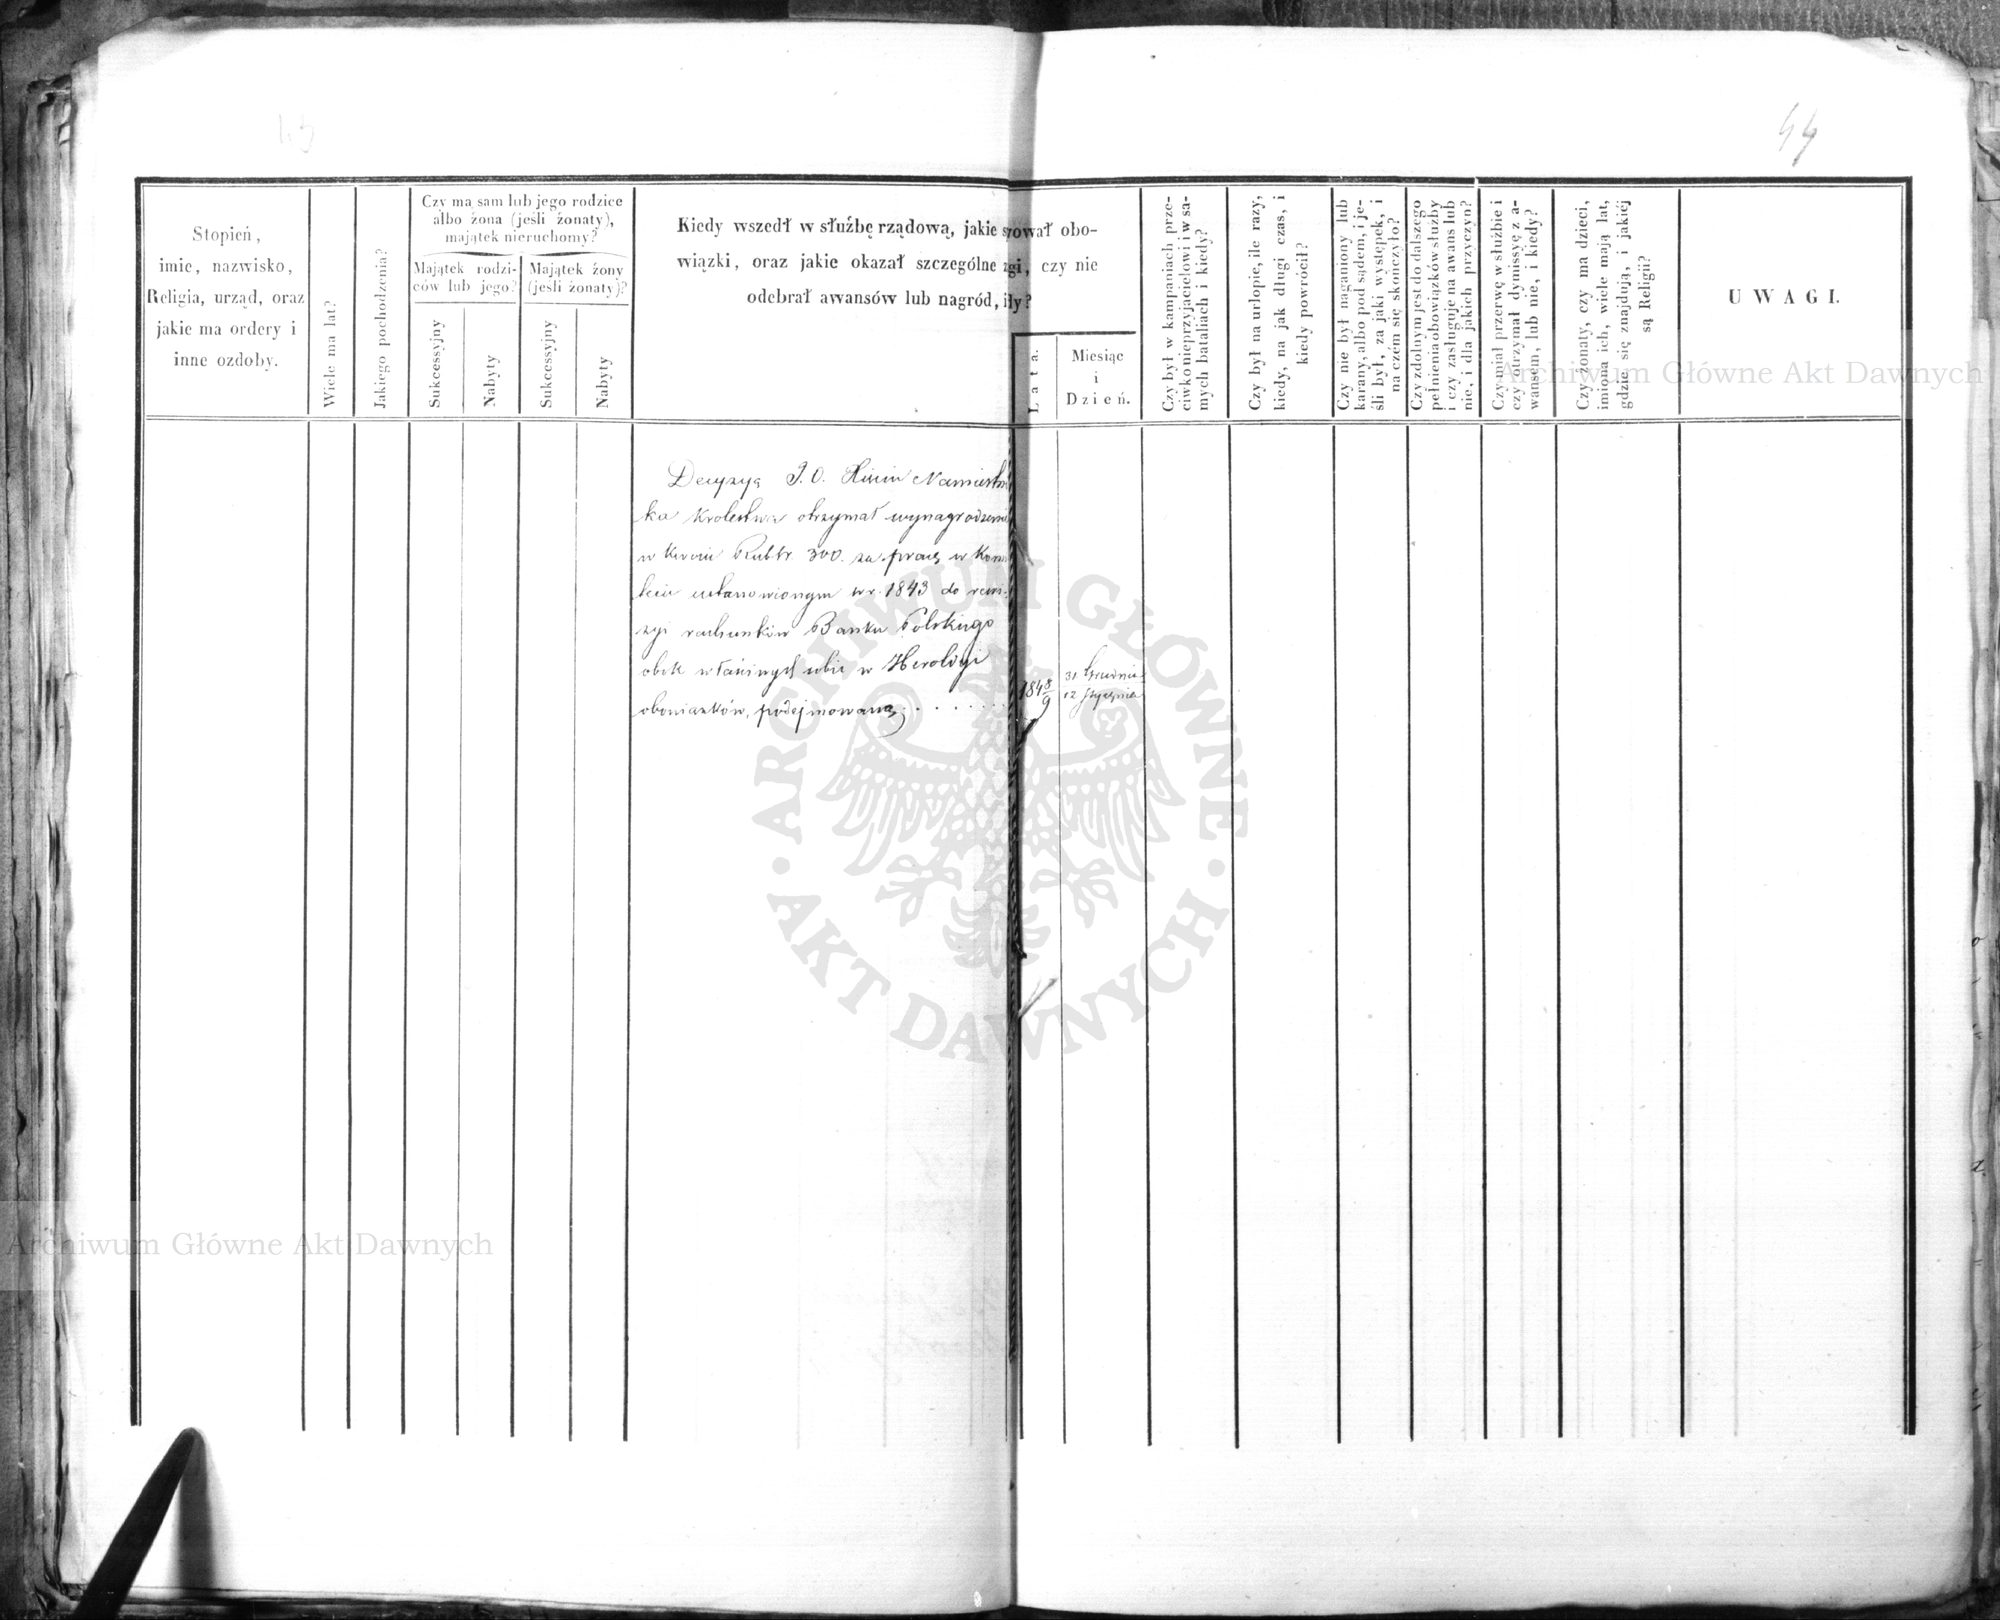 43
44
Stopień,
imie, nazwisko,
Religia, urząd, oraz
jakie ma ordery i
inne ozdoby.
Wiele ma lat?
Jakiego pochodzenia?
Czy ma sam lub jego rodzice
albo żona (jeśli żonaty),
majątek nieruchomy?
Majątek rodzi-
ców lub jego?
Majątek żony
(jeśli żonaty)?
Sukcessyjny
Nabyty
Sukcessyjny
Nabyty
Kiedy wszedł w służbę rządową, jakie s rował obo-
wiązki, oraz jakie okazał szczególne z gi, czy nie
odebrał awansów lub nagród, i ły?
Lata.
Miesiąc
i
Dzień.
Czy był w kampaniach prze-
ciwko nieprzyjacielowi i w sa-
mych bataliach i kiedy?
Czy był na urlopie, ile razy,
kiedy, na jak długi czas, i
kiedy powrócił?
Czy nie był naganiony lub
karany, albo pod sądem, i je-
śli był, za jaki występek, i
na czém się skończyło?
Czy zdolnym jest do dalszego
pełnienia obowiązków służby
i czy zasługuje na awans lub
nie, i dla jakich przyczyn?
Czy miał przerwę w służbie i
czy otrzymał dymissyę z a-
wansem, lub nie, i kiedy?
Czy żonaty, czy ma dzieci,
imiona ich, wiele mają lat,
gdzie się znajdują, i jakiéj
są Religii?
UWAGI.
Decyzyą J. O. Xięcia Namiestni
ka Królestwa otrzymał wynagrodzenie
w kwocie Rubsr. 300. za pracę w Komi
tecie ustanowionym w r. 1843 do rewi-
zyi rachunków Banku Polskiego
obok właściwych sobie w Heroldyi
obowiązków, podejmowaną . . . . . . . .
1848/9
31 Grudnia
12 Stycznia
Archiwum Główne Akt Dawnych
Archiwum Główne Akt Dawnych
ARCHIWUM GŁÓWNE · AKT DAWNYCH ·